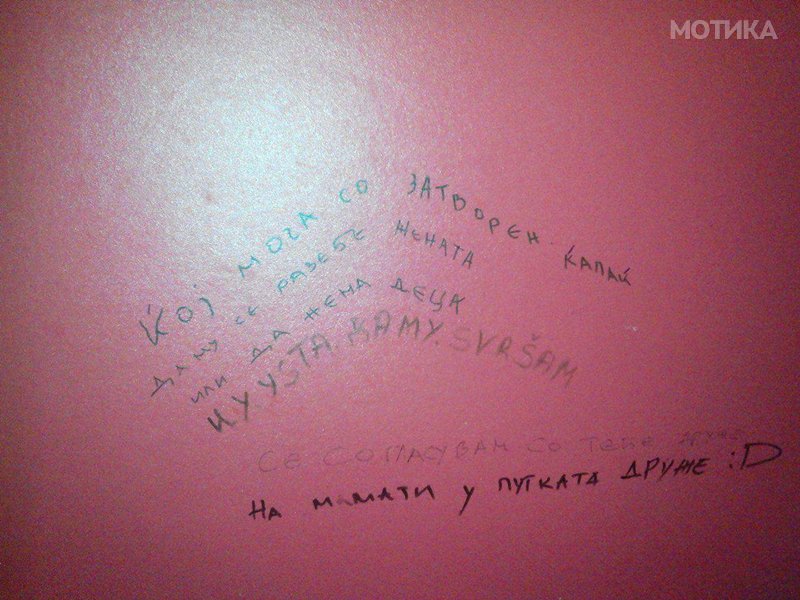 МОТИКА
КОЈ МОЧА СО ЗАТВОРЕН КАПАЙ
ДАМУ СЕ РАЗЕБЕ ЖЕНАТА
ИЛИ ДА НЕМА ДЕЦА
И У УSТА ДАМУ SVRŠАМ
СЕ СОГЛАСУВАМ СО ТЕБЕ ДРУЖЕ
НА МАМАТИ У ПУТКАТА ДРУЖЕ :D